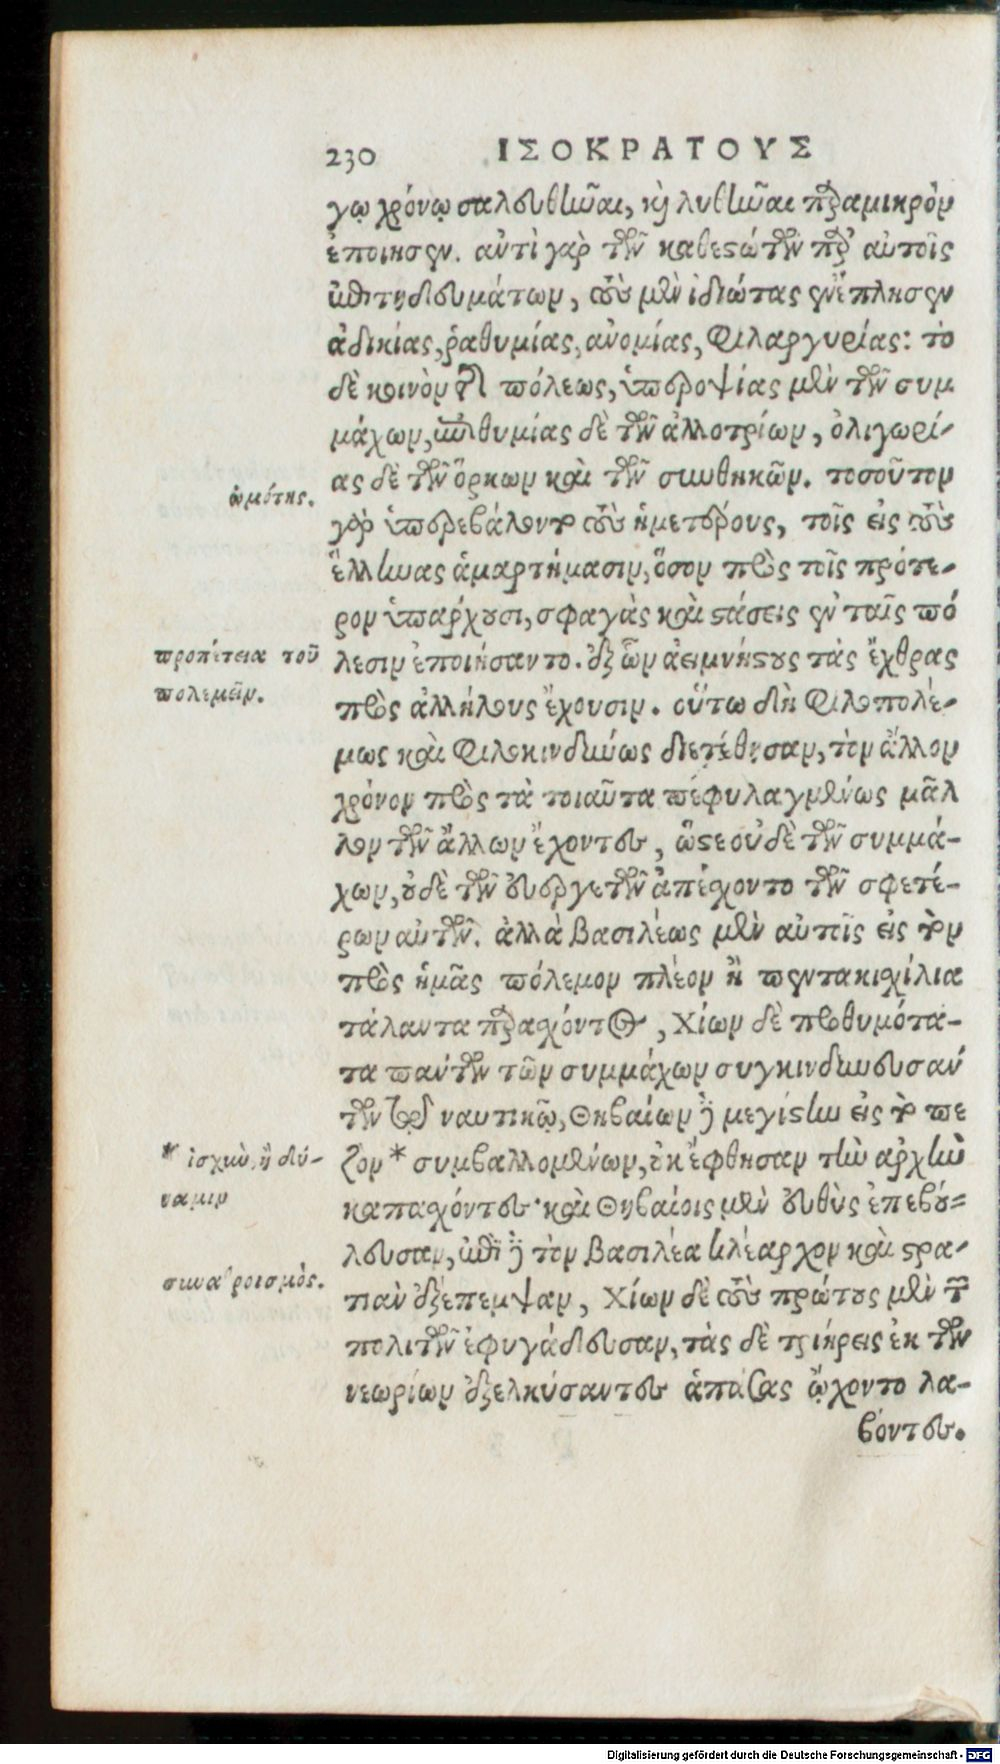 230 ΙΣΟΚΡΑΤΟΥΣ
γῳ χρόνῳ σαλευθῆναι, κὶ λυθῆναι παρὰ μικρὸν
ἐποίησεν. ἀντὶ γὰρ τῶν καθεστώτων παρ' αὐτοῖς
ἐπιτηδευμάτων, τοὺς μὲν ἰδιώτας ἐνέπλησεν
ἀδικίας, ῥαθυμίας, ἀνομίας, φιλαργυρίας: τὸ
δὲ κοινὸν τῆς πόλεως, ὑπεροψίας μὲν τῶν συμ
μάχων, ἐπιθυμίας δὲ τῶν ἀλλοτρίων, ὀλιγωρί-
ας δὲ τῶν ὅρκων καὶ τῶν συνθηκῶν. τοσοῦτον
γὰρ ὑπερεβάλοντο τοὺς ἡμετέρους, τοῖς εἰς τοὺς
ἕλληνας ἁμαρτήμασιν, ὅσον πρὸς τοῖς πρότε-
ρον ὑπάρχουσι, σφαγὰς καὶ στάσεις ἐν ταῖς πό
λεσιν ἐποιήσαντο. ἐξ ὧν ἀειμνήστους τὰς ἔχθρας
πρὸς ἀλλήλους ἔχουσιν. οὕτω δὴ φιλοπολέ-
μως καὶ φιλοκινδύνως διετέθησαν, τὸν ἄλλον
χρόνον πρὸς τὰ τοιαῦτα πεφυλαγμένως μᾶλ
λον τῶν ἄλλων ἔχοντες, ὥστε οὐδὲ τῶν συμμά-
χων, οὐδὲ τῶν εὐεργετῶν ἀπέσχοντο τῶν σφετέ-
ρων αὐτῶν. ἀλλὰ βασιλέως μὲν αὐτοῖς εἰς τὸν
πρὸς ἡμᾶς πόλεμον πλέον ἢ πεντακισχίλια
τάλαντα παρασχόντος, Χίων δὲ προθυμότα-
τα πάντων τῶν συμμάχων συγκινδυνευσάν
των τῷ ναυτικῷ, Θηβαίων δὲ μεγίστην εἰς τὸ πε
ζὸν * συμβαλλομένων, οὐκ ἔφθησαν τὴν ἀρχὴν
κατασχόντες· καὶ Θηβαίοις μὲν εὐθὺς ἐπεβού=
λευσαν, ἐπὶ δὲ τὸν βασιλέα κλέαρχον καὶ στρα-
τιὰν ἐξέπεμψαν, Χίων δὲ τοὺς πρώτους μὲν τῶν
πολιτῶν ἐφυγάδευσαν, τὰς δὲ τριήρεις ἐκ τῶν
νεωρίων ἐξελκύσαντες ἁπάσας ᾤχοντο λα-
βόντες.
ὠμότης.
προπέτεια τοῦ
πολεμεῖν.
* ἰσχὺν, ἢ δύ-
ναμιν
συναθροισμὸς.
Digitalisierung gefördert durch die Deutsche Forschungsgemeinschaft - DFG